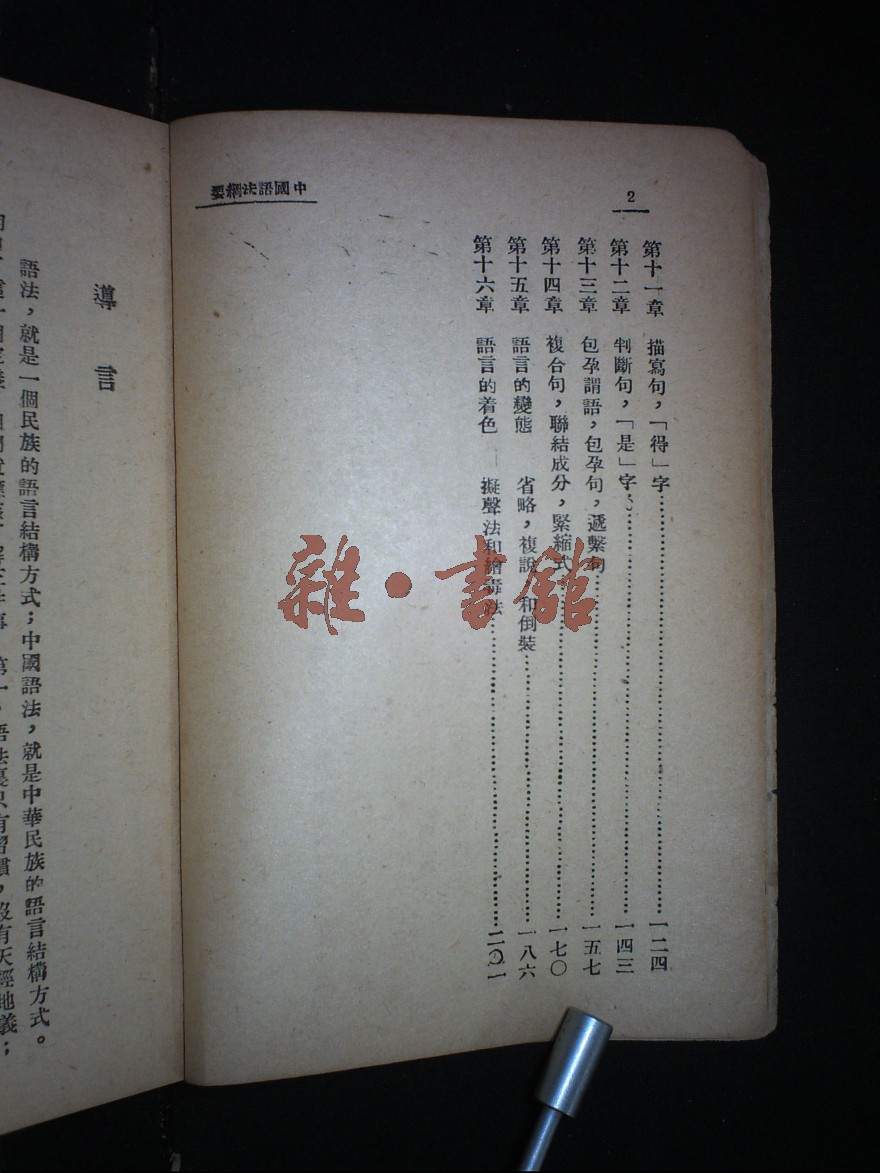 2
中國語法綱要
第十一章 描寫句，「得」字……124
第十二章 判斷句，「是」字……一四三
第十三章 包孕謂語，包孕句，遞繫句……一五七
第十四章 複合句，聯結成分，緊縮式……一七〇
第十五章 語言的變態 省略，複說 和倒裝……一八六
第十六章 語言的着色 擬聲法和繪 法……二〇一
雜·書館
導言
語法，就是一個民族的語言結構方式；中國語法，就是中華民族的語言結構方式。
第一，語法裏只有習慣，沒有天經地義；